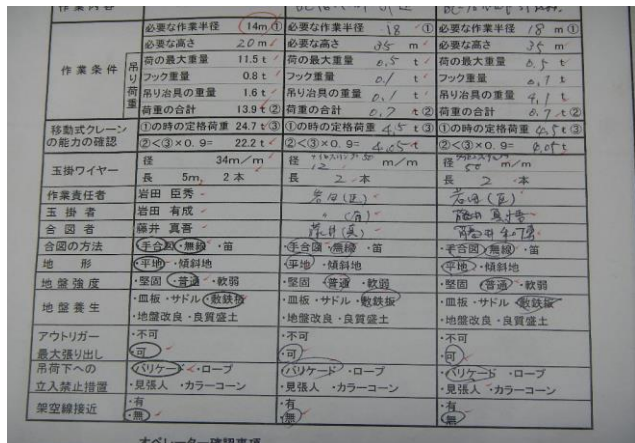 作業内容
必要な作業半径 14m ① 必要な作業半径 18 ① 必要な作業半径 18 m ①
必要な高さ 20m 必要な高さ 35 m 必要な高さ 35 m
作業条件 吊り荷重 荷の最大重量 11.5 t 荷の最大重量 0.5 t 荷の最大重量 0.5 t
フック重量 0.8 t フック重量 0.1 t フック重量 0.1 t
吊り冶具の重量 1.6 t 吊り冶具の重量 0.1 t 吊り冶具の重量 0.1 t
荷重の合計 13.9 t ② 荷重の合計 0.7 t ② 荷重の合計 0.7 t ②
移動式クレーンの能力の確認 ①の時の定格荷重 24.7 t ③ ①の時の定格荷重 4.5 t ③ ①の時の定格荷重 4.5 t ③
②<③×0.9= 22.2 t ②<③×0.9= 4.05 t ②<③×0.9= 4.05 t
玉掛ワイヤー 径 34m/m 径 12 m/m 径 50 m/m
長 5m, 2本 長 2 本 長 2 本
作業責任者 岩田 臣秀 岩田(臣) 岩田(臣)
玉掛者 岩田 有成 〃(有) 藤井 真吾
合図者 藤井 真吾 藤井(真) 藤井
合図の方法 ・手合図・無線・笛 ・手合図・無線・笛 ・手合図・無線・笛
地形 ・平地・傾斜地 ・平地・傾斜地 ・平地・傾斜地
地盤強度 ・堅固・普通・軟弱 ・堅固・普通・軟弱 ・堅固・普通・軟弱
地盤養生 ・皿板・サドル・敷鉄板 ・皿板・サドル・敷鉄板 ・皿板・サドル・敷鉄板
・地盤改良・良質盛土 ・地盤改良・良質盛土 ・地盤改良・良質盛土
アウトリガー ・不可 ・不可 ・不可
最大張り出し ・可 ・可 ・可
吊荷下への ・バリケード・ロープ ・バリケード・ロープ ・バリケード・ロープ
立入禁止措置 ・見張人・カラーコーン ・見張人・カラーコーン ・見張人・カラーコーン
架空線接近 ・有 ・有 ・有
・無 ・無 ・無
オペレーター確認事項